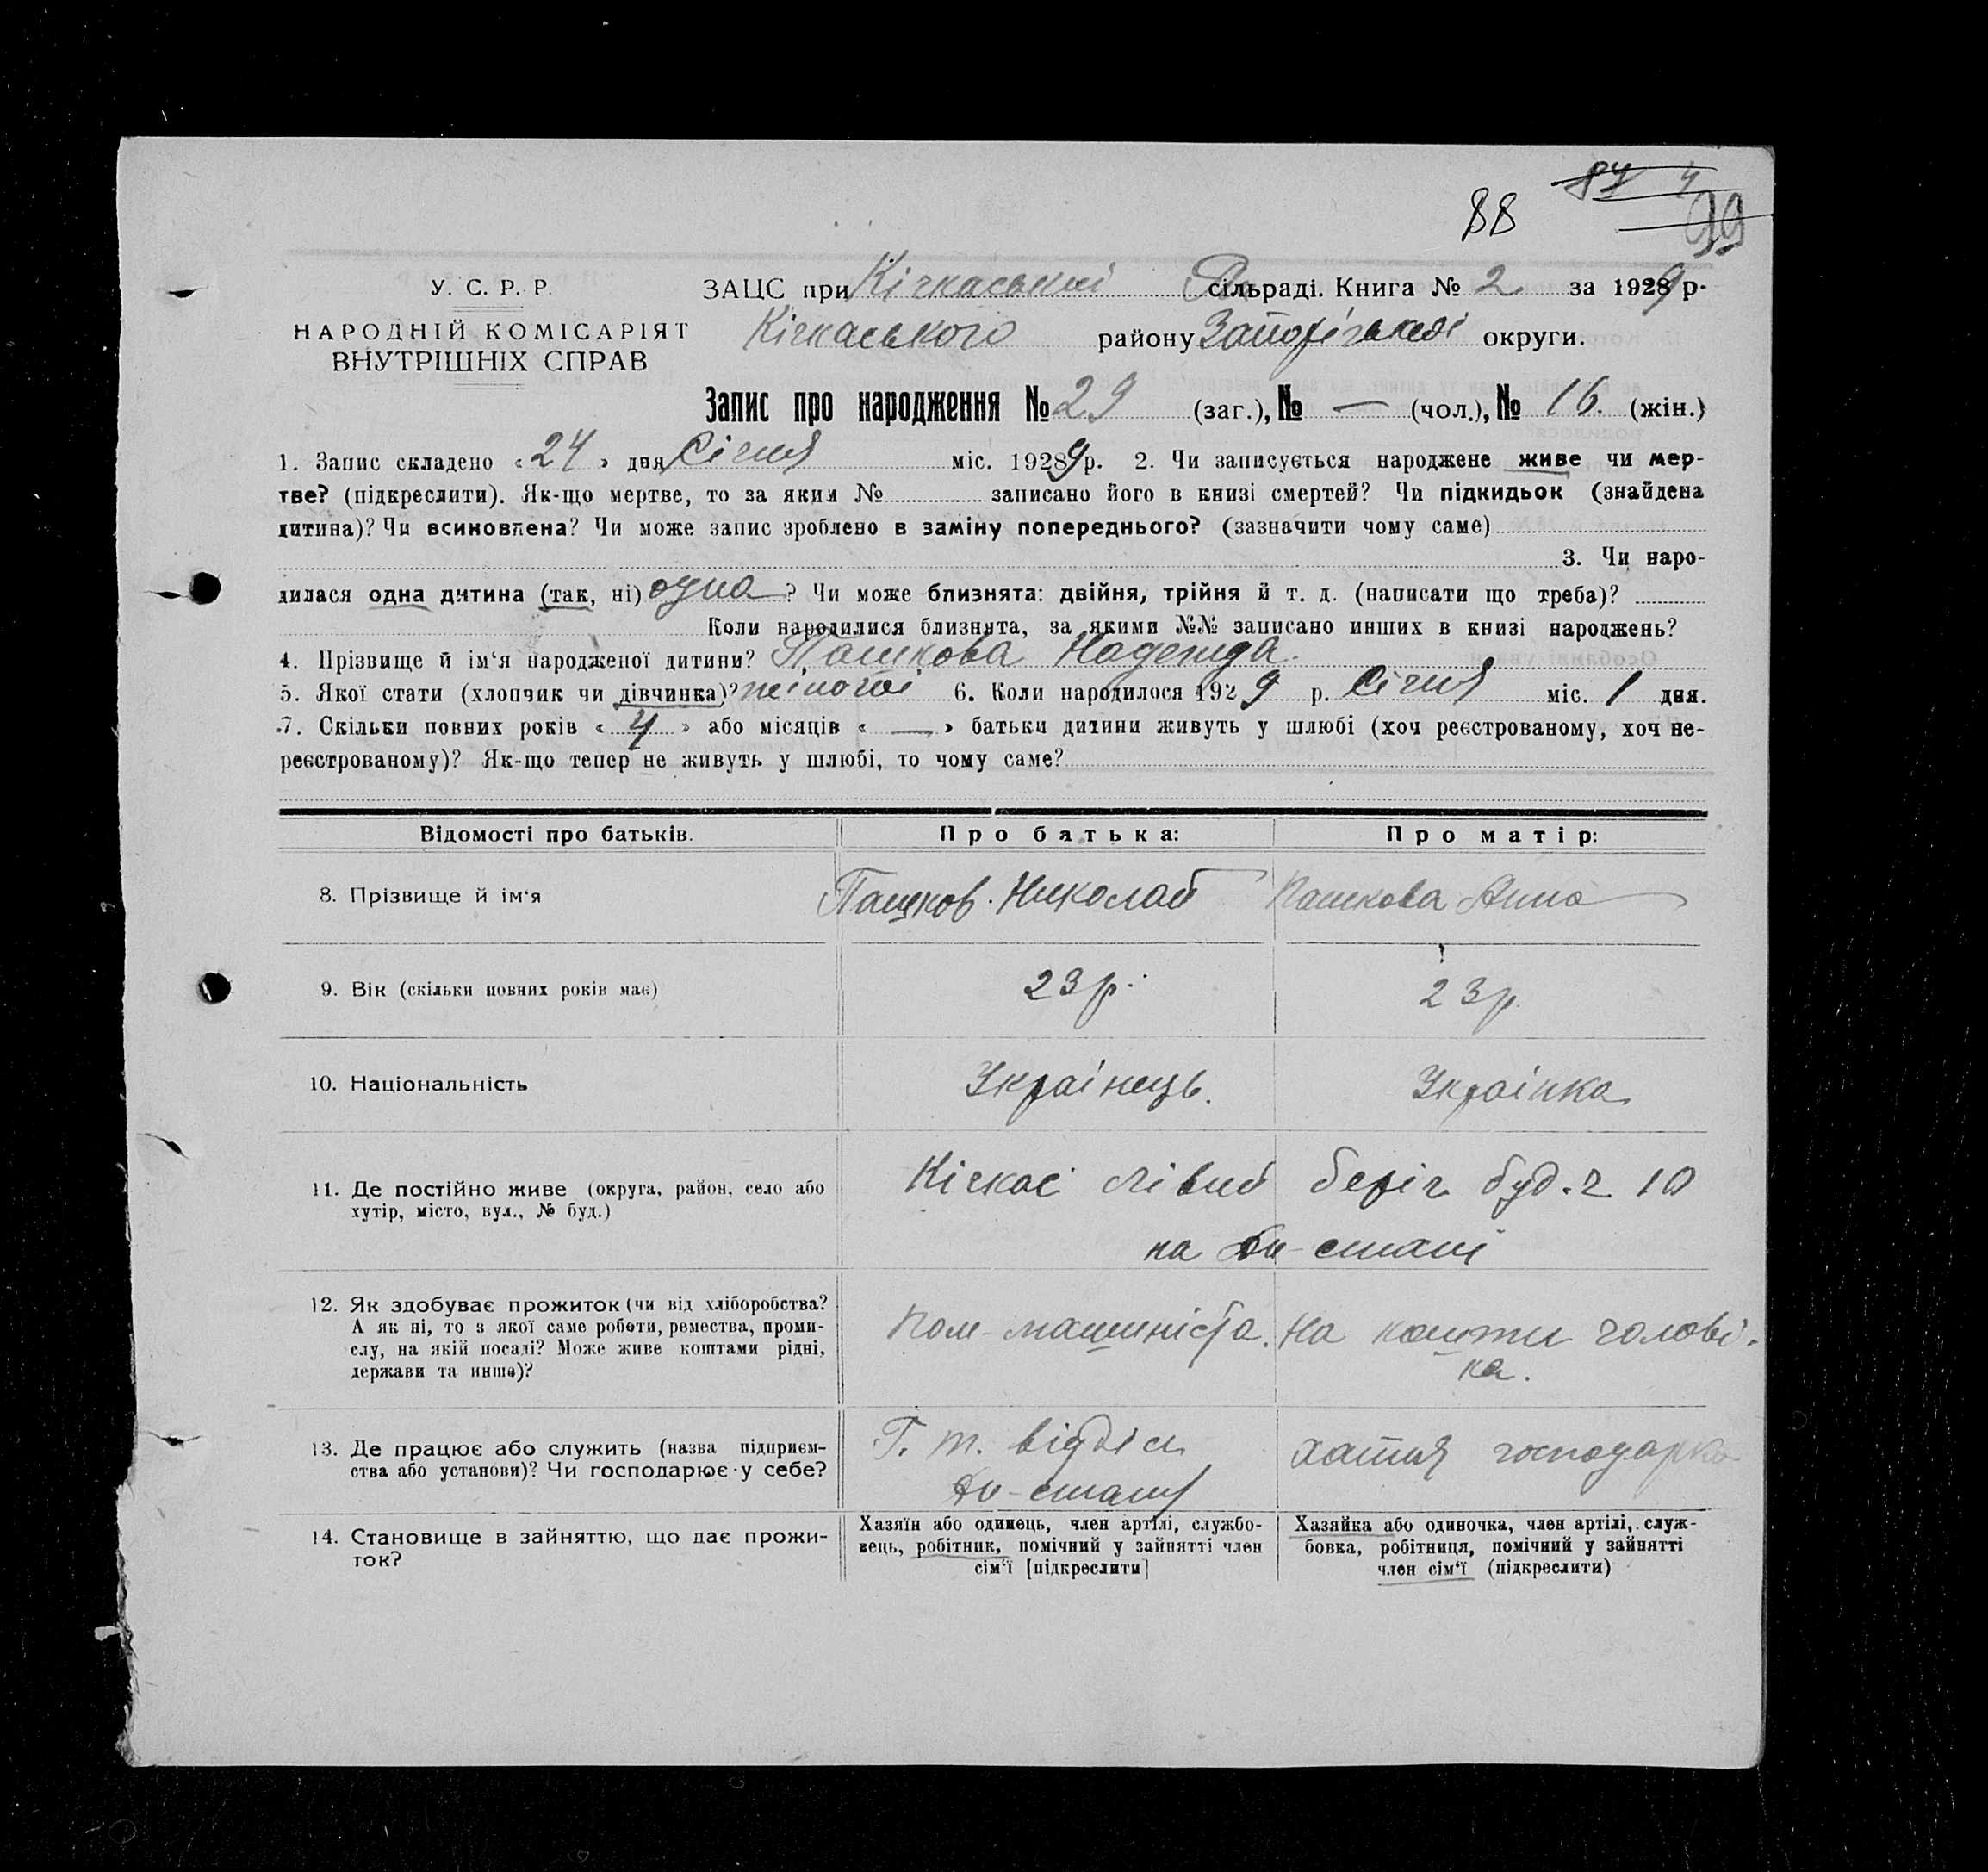 87 4
88 99
У. С. Р. Р.
НАРОДНІЙ КОМІСАРІЯТ
ВНУТРІШНІХ СПРАВ
ЗАЦС при Кічкаській сільраді. Книга № 2 за 1929 р.
Кічкаського району Запорізької округи.
Запис про народження № 29 (заг.), № — (чол.), № 16. (жін.)
1. Запис складено « 24 » дня Січня міс. 1929 р. 2. Чи записується народжене живе чи мер-
тве? (підкреслити). Як-що мертве, то за яким № записано його в книзі смертей? Чи підкидьок (знайдена
дитина)? Чи всиновлена? Чи може запис зроблено в заміну попереднього? (зазначити чому саме)
3. Чи наро-
дилася одна дитина (так, ні) одна ? Чи може близнята: двійня, трійня й т. д. (написати що треба)?
Коли народилися близнята, за якими №№ записано инших в книзі народжень?
4. Прізвище й ім‘я народженої дитини? Пашкова Надежда.
5. Якої стати (хлопчик чи дівчинка)? жіночої 6. Коли народилося 1929 р. Січня міс. 1 дня.
7. Скільки повних років « 4 » або місяців « — » батьки дитини живуть у шлюбі (хоч реєстрованому, хоч не-
реєстрованому)? Як-що тепер не живуть у шлюбі, то чому саме?
Відомості про батьків. Про батька: Про матір:
8. Прізвище й ім‘я Пашков. Николай Пашкова Анна
9. Вік (скільки повних років має) 23 р. 23 р.
10. Національність Українець. Українка
11. Де постійно живе (округа, район, село або Кічкас Лівий беріг буд. ч 10
хутір, місто, вул., № буд.)
на Дн-стані
12. Як здобуває прожиток (чи від хліборобства?
А як ні, то з якої саме роботи, ремества, проми- Пом-машиніста. На кошти чолові-
слу, на якій посаді? Може живе коштами рідні, ка.
держави та инше)?
13. Де працює або служить (назва підприєм- Г. т. відділ хатня господарка
ства або установи)? Чи господарює у себе? Дн-стану
14. Становище в зайняттю, що дає прожи- Хазяїн або одинець, член артілі, службо- Хазяйка або одиночка, член артілі, служ-
ток? вець, робітник, помічний у зайнятті член бовка, робітниця, помічний у зайнятті
сім‘ї [підкреслити] член сім‘ї (підкреслити)